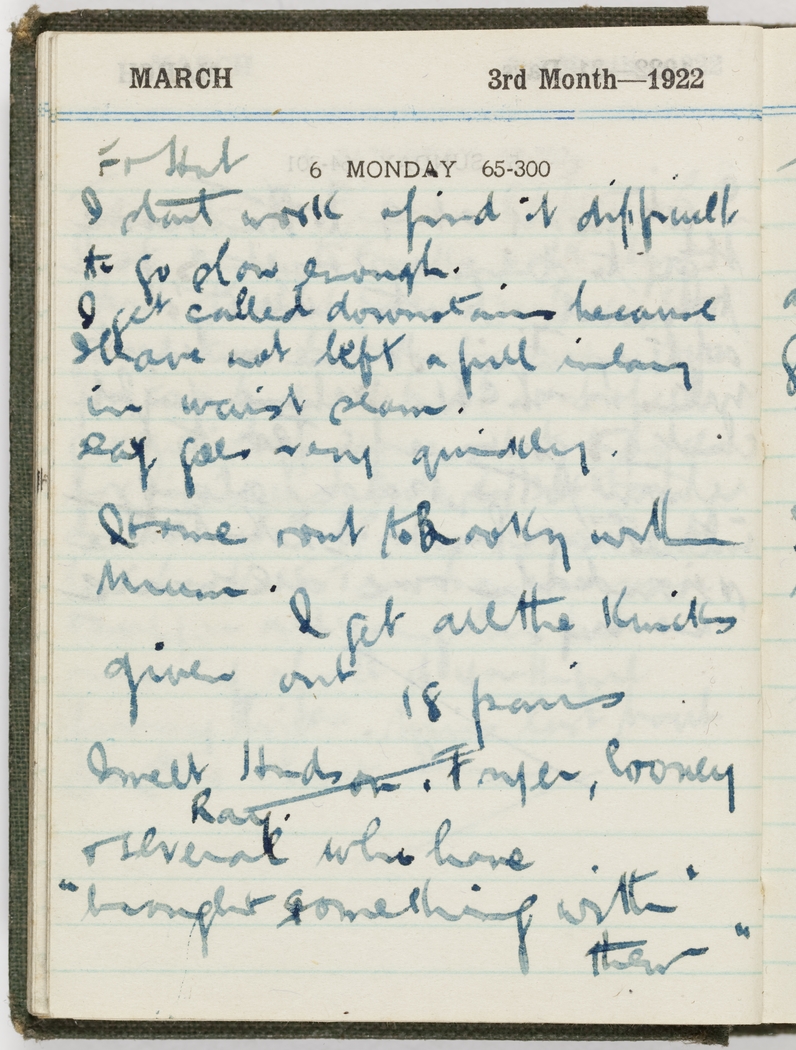 MARCH 3rd Month—1922
6 MONDAY 65-300
I start work & find it difficult
to go slow enough.
I get called downstairs because
I have not left a full inlay
in waist seam.
Day goes very quickly.
I come out to with
Mum.
I get all the Knicks
given out 18 pairs
I meet Hudson, Looney
Ray.
& several who have
"brought something with"
them"